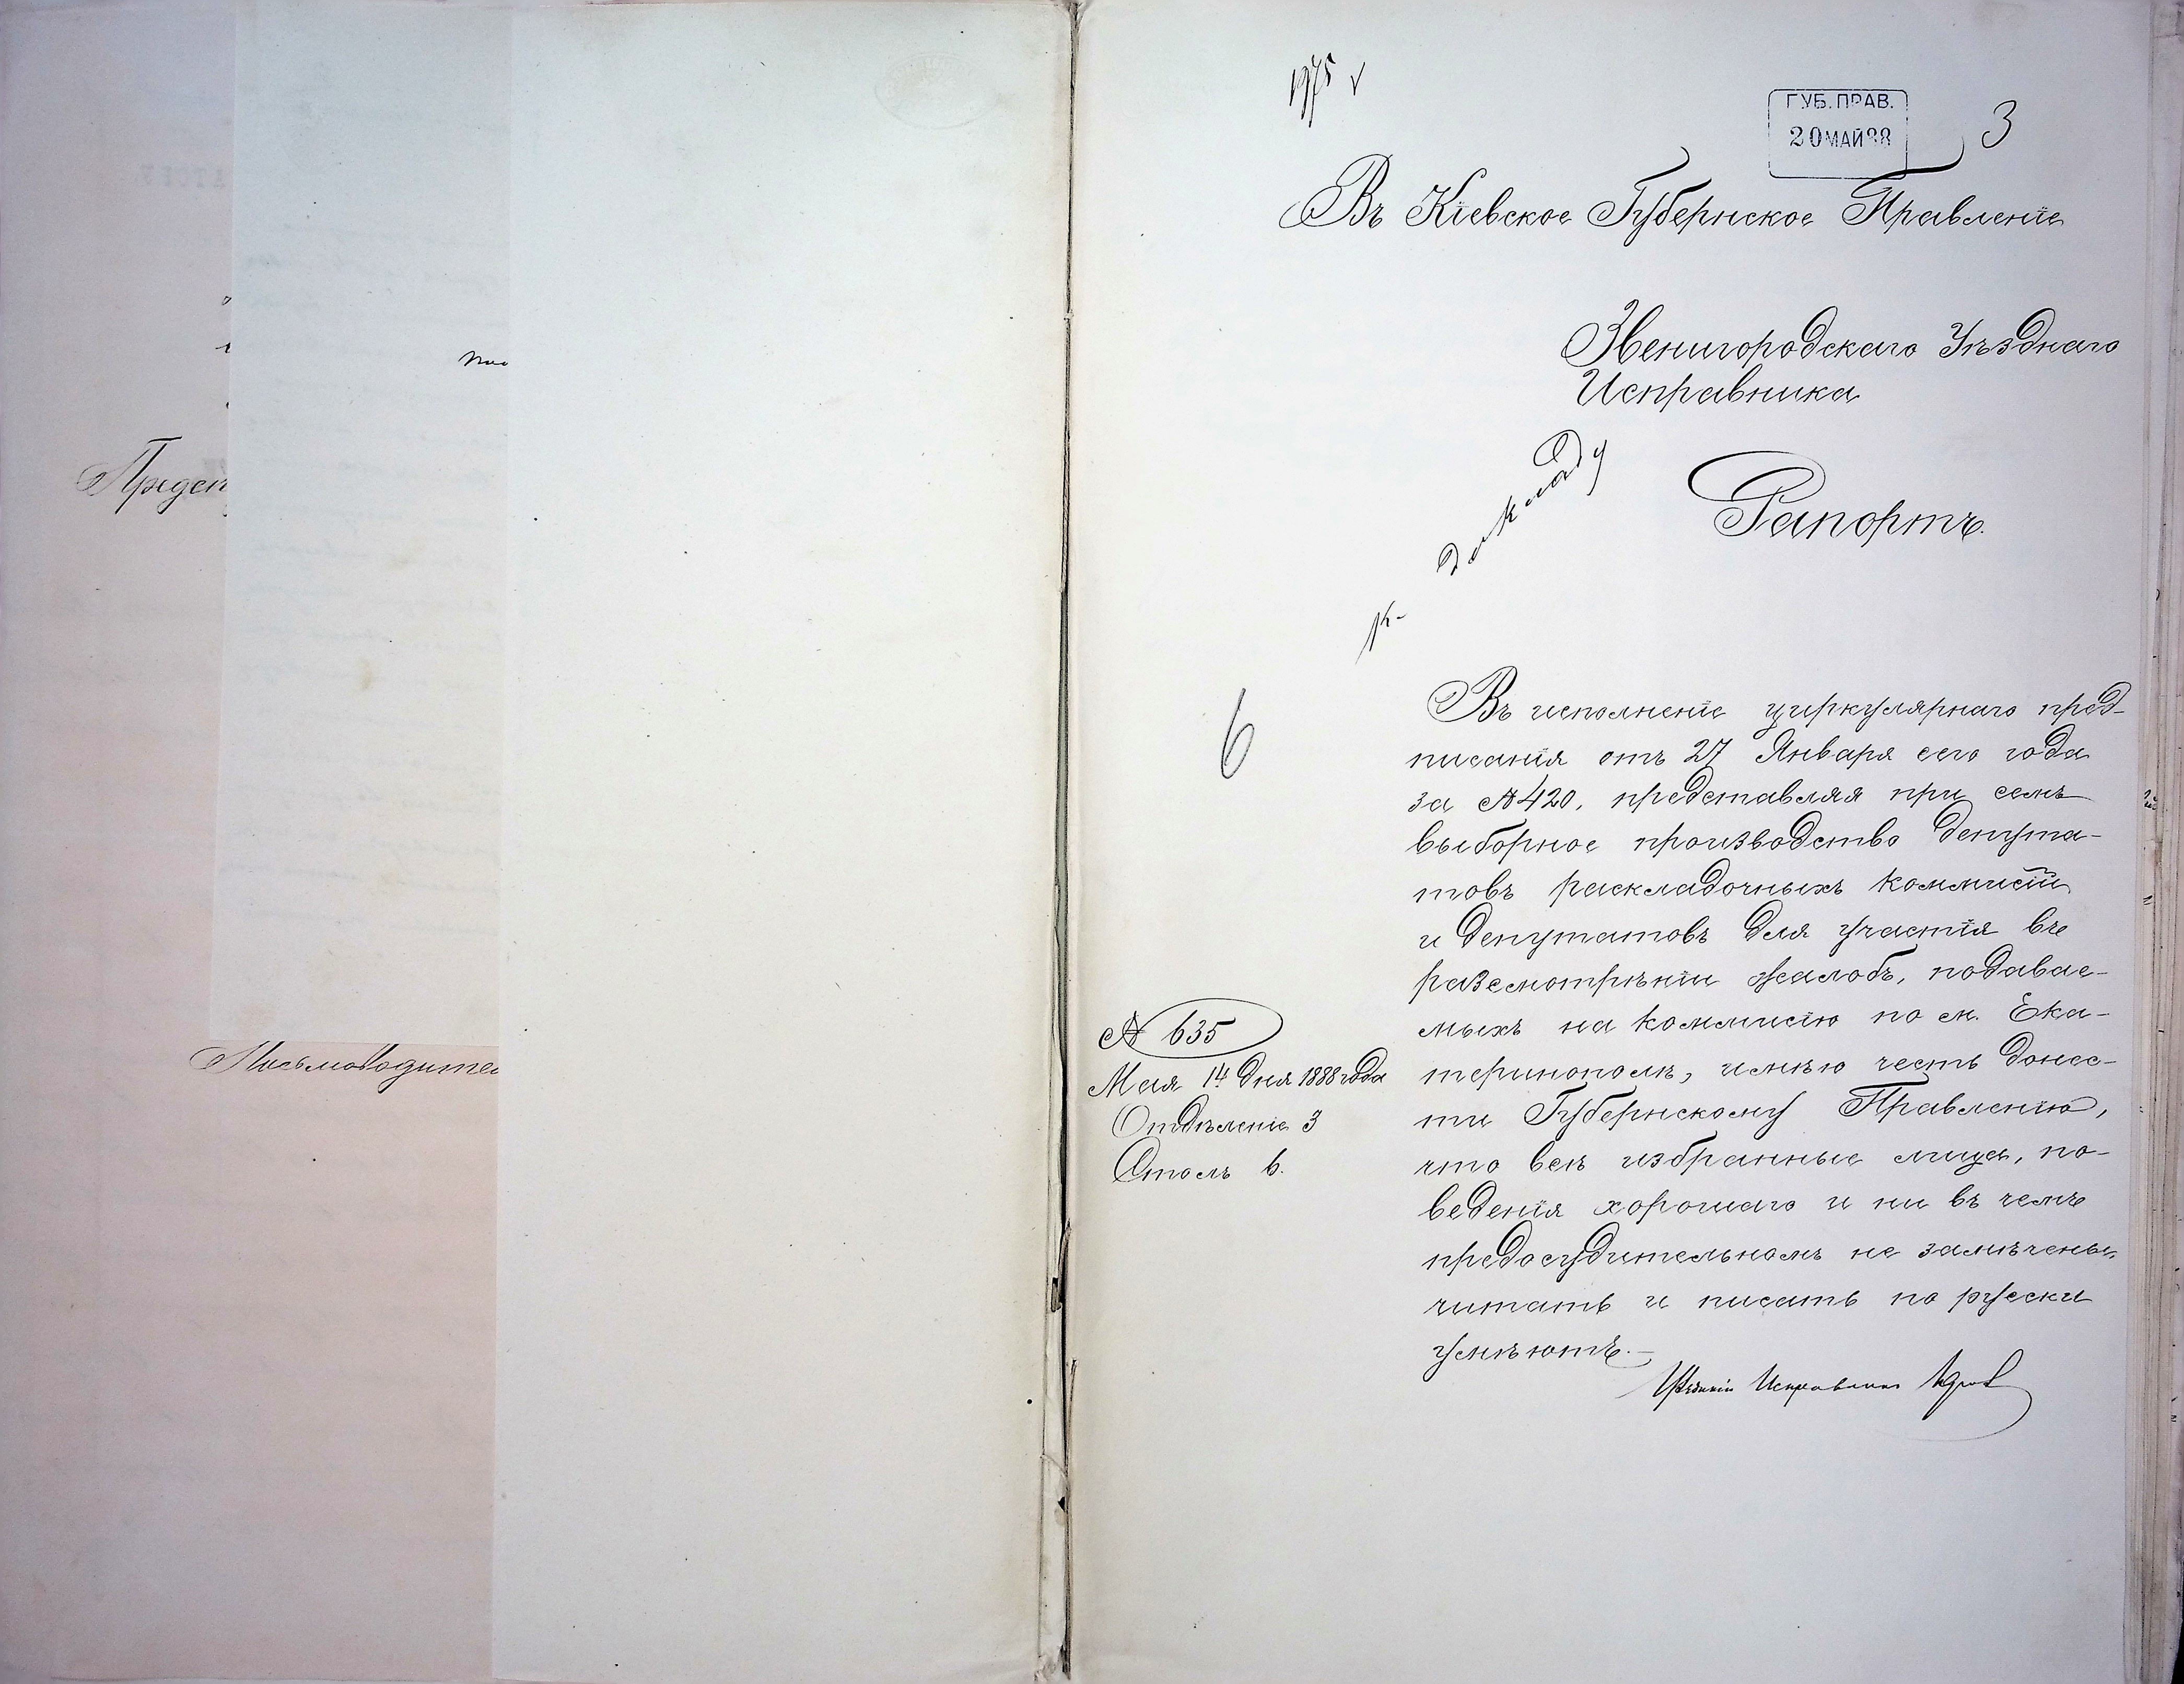 Предсп
Письмоводител
1975
ГУБ. ПРАВ.
20 МАЙ 88
3
Въ Кіевское Губернское Правленіе
Звенигородскаго Уѣзднаго
Исправника
къ докладу
Рапортъ.
6
Въ исполненіе циркулярнаго пред-
писанія отъ 27 Января сего года
за № 420, представляя при семъ
выборное производство депута-
товъ раскладочныхъ коммисій
и депутатовъ для участія въ
разсмотрѣніи жалобъ, подавае-
мыхъ на коммисію по м. Ека-
теринополь, имѣю честь донес-
ти Губернскому Правленію,
что всѣ избранные лица, по-
веденія хорошаго и ни въ чемъ
предосудительномъ не замѣчены,
читать и писать по русски
умѣютъ.—
Уѣздный Исправникъ
№ 635
Мая 14 дня 1888 года
Отдѣленіе 3
Столъ 6.